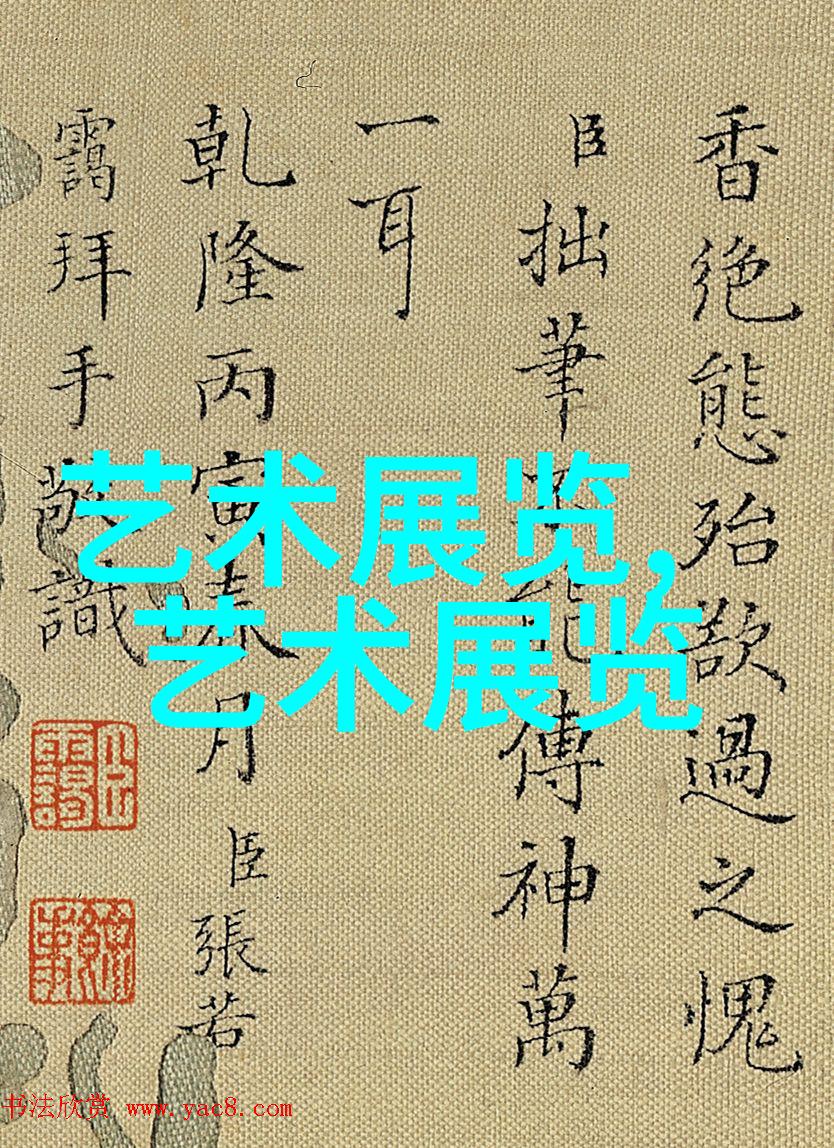 香絶態殆欲過之愧
臣拙筆不能傳神萬
一耳
乾隆丙寅春月臣張若
靄拜手敬識
艺术展览,
艺术展览
书法欣赏 www.yac8.com